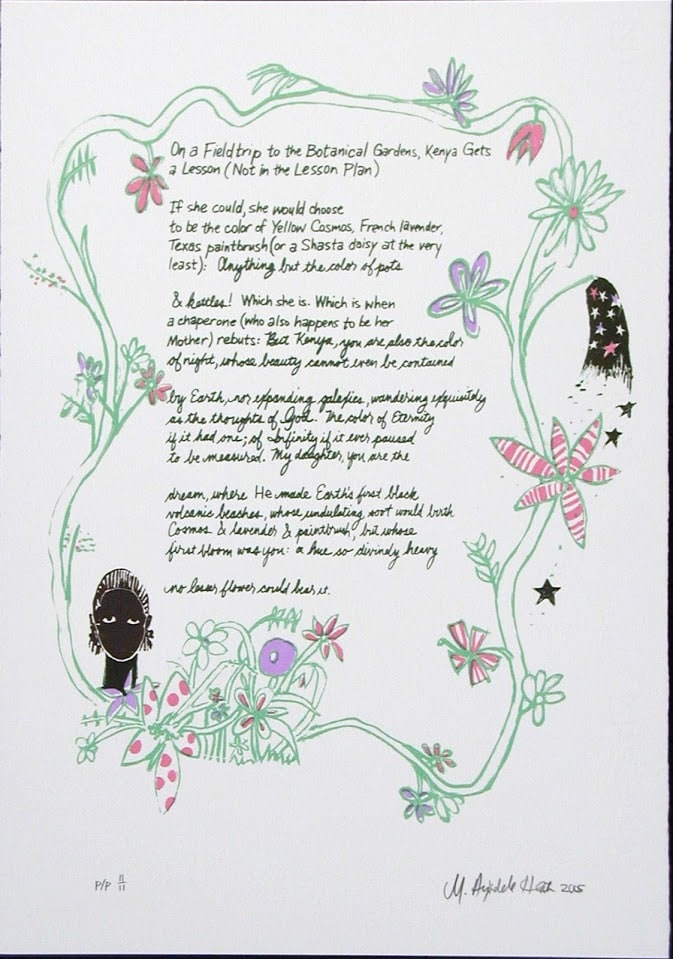 On a Fieldtrip to the Botanical Gardens, Kenya Gets
a Lesson (Not in the Lesson Plan)
If she could, she would choose
to be the color of Yellow Cosmos, French lavender,
Texas paintbrush (or a Shasta daisy at the very
least): Anything but the color of pots
& kettles! Which she is. Which is when
a chaperone (who also happens to be her
Mother) rebuts: But Kenya, you are also the color
of night, whose beauty cannot even be contained
by Earth, nor expanding galaxies, wandering exquisitely
as the thoughts of God. The color of Eternity
if it had one; of Infinity if it ever paused
to be measured. My daughter, you are the
dream, where He made Earth's first black
volcanic beaches, whose undulating soot would birth
Cosmos & lavender & paintbrush, but whose
first bloom was you: a hue so divinely heavy
no lesser flower could bear it.
P/P 11/11
M. Ayodele Heath 2005